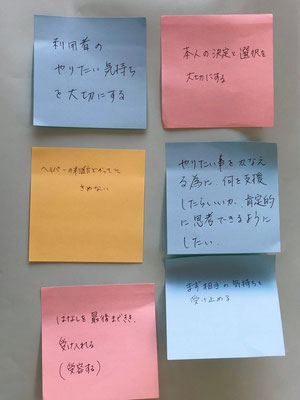 利用者の
やりたい気持ち
を大切にする
本人の決定と選択を
大切にする
ヘルパーの
きめない
やりたい事をかなえ
る為に、何を支援
したらいいか、肯定的
に思考できるように
したい。
まず相手の気持ちを
受け止める
はなしを最後まできき、
受け入れる
(受容する)